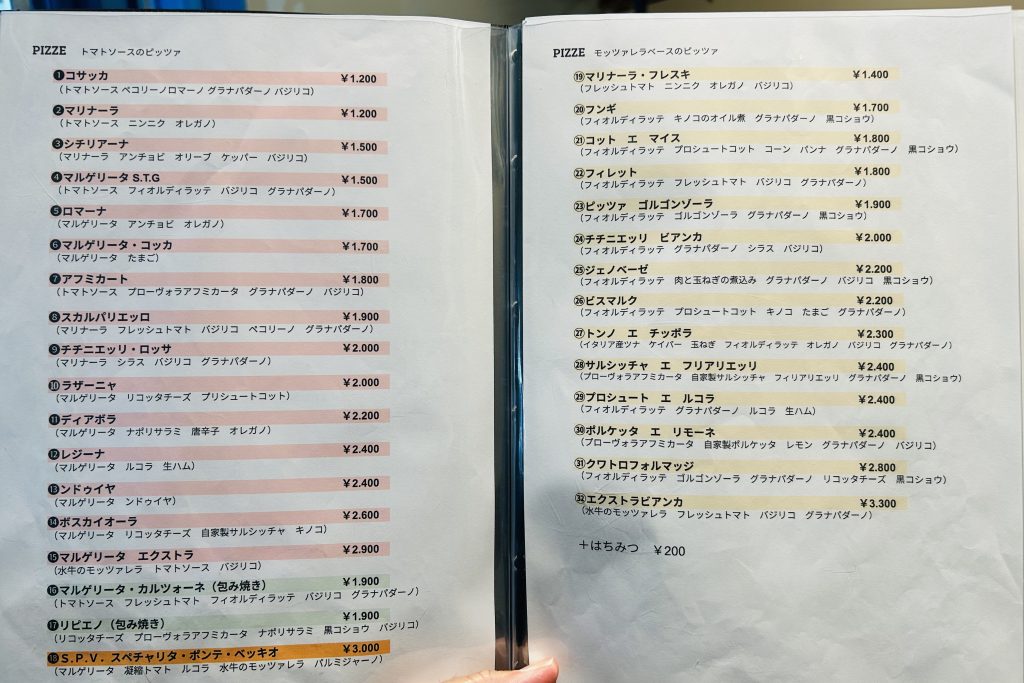 PIZZE トマトソースのピッツァ
❶コサッカ ￥1.200
（トマトソース ペコリーノロマーノ グラナパダーノ バジリコ）
❷マリナーラ ￥1.200
（トマトソース ニンニク オレガノ）
❸シチリアーナ ￥1.500
（マリナーラ アンチョビ オリーブ ケッパー バジリコ）
❹マルゲリータ S.T.G ￥1.500
（トマトソース フィオルディラッテ バジリコ グラナパダーノ）
❺ロマーナ ￥1.700
（マルゲリータ アンチョビ オレガノ）
❻マルゲリータ・コッカ ￥1.700
（マルゲリータ たまご）
❼アフミカート ￥1.800
（トマトソース プローヴォラアフミカータ グラナパダーノ バジリコ）
❽スカルパリエッロ ￥1.900
（マリナーラ フレッシュトマト バジリコ ペコリーノ グラナパダーノ）
❾チチニエッリ・ロッサ ￥2.000
（マリナーラ シラス バジリコ グラナパダーノ）
❿ラザーニャ ￥2.000
（マルゲリータ リコッタチーズ プリシュートコット）
⓫ディアボラ ￥2.200
（マルゲリータ ナポリサラミ 唐辛子 オレガノ）
⓬レジーナ ￥2.400
（マルゲリータ ルコラ 生ハム）
⓭ンドゥイヤ ￥2.400
（マルゲリータ ンドゥイヤ）
⓮ボスカイオーラ ￥2.600
（マルゲリータ リコッタチーズ 自家製サルシッチャ キノコ）
⓯マルゲリータ エクストラ ￥2.900
（水牛のモッツァレラ トマトソース バジリコ）
⓰マルゲリータ・カルツォーネ（包み焼き） ￥1.900
（トマトソース フレッシュトマト フィオルディラッテ バジリコ グラナパダーノ）
⓱リピエノ（包み焼き） ￥1.900
（リコッタチーズ プローヴォラアフミカータ ナポリサラミ 黒コショウ バジリコ）
⓲S.P.V. スペチャリタ・ポンテ・ベッキオ ￥3.000
（マルゲリータ 凝縮トマト ルコラ 水牛のモッツァレラ パルミジャーノ）
PIZZE モッツァレラベースのピッツァ
⑲マリナーラ・フレスキ ￥1.400
（フレッシュトマト ニンニク オレガノ バジリコ）
⑳フンギ ￥1.700
（フィオルディラッテ キノコのオイル煮 グラナパダーノ 黒コショウ）
㉑コット エ マイス ￥1.800
（フィオルディラッテ プロシュートコット コーン パンナ グラナパダーノ 黒コショウ）
㉒フィレット ￥1.800
（フィオルディラッテ フレッシュトマト バジリコ グラナパダーノ）
㉓ピッツァ ゴルゴンゾーラ ￥1.900
（フィオルディラッテ ゴルゴンゾーラ グラナパダーノ 黒コショウ）
㉔チチニエッリ ビアンカ ￥2.000
（フィオルディラッテ グラナパダーノ シラス バジリコ）
㉕ジェノベーゼ ￥2.200
（フィオルディラッテ 肉と玉ねぎの煮込み グラナパダーノ バジリコ 黒コショウ）
㉖ビスマルク ￥2.200
（フィオルディラッテ プロシュートコット キノコ たまご グラナパダーノ）
㉗トンノ エ チッポラ ￥2.300
（イタリア産ツナ ケイパー 玉ねぎ フィオルディラッテ オレガノ バジリコ グラナパダーノ）
㉘サルシッチャ エ フリアリエッリ ￥2.400
（プローヴォラアフミカータ 自家製サルシッチャ フィリアリエッリ グラナパダーノ 黒コショウ）
㉙プロシュート エ ルコラ ￥2.400
（フィオルディラッテ グラナパダーノ ルコラ 生ハム）
㉚ポルケッタ エ リモーネ ￥2.400
（プローヴォラアフミカータ 自家製ポルケッタ レモン グラナパダーノ バジリコ）
㉛クワトロフォルマッジ ￥2.800
（フィオルディラッテ ゴルゴンゾーラ グラナパダーノ リコッタチーズ 黒コショウ）
㉜エクストラビアンカ ￥3.300
（水牛のモッツァレラ フレッシュトマト バジリコ グラナパダーノ）
＋はちみつ ￥200